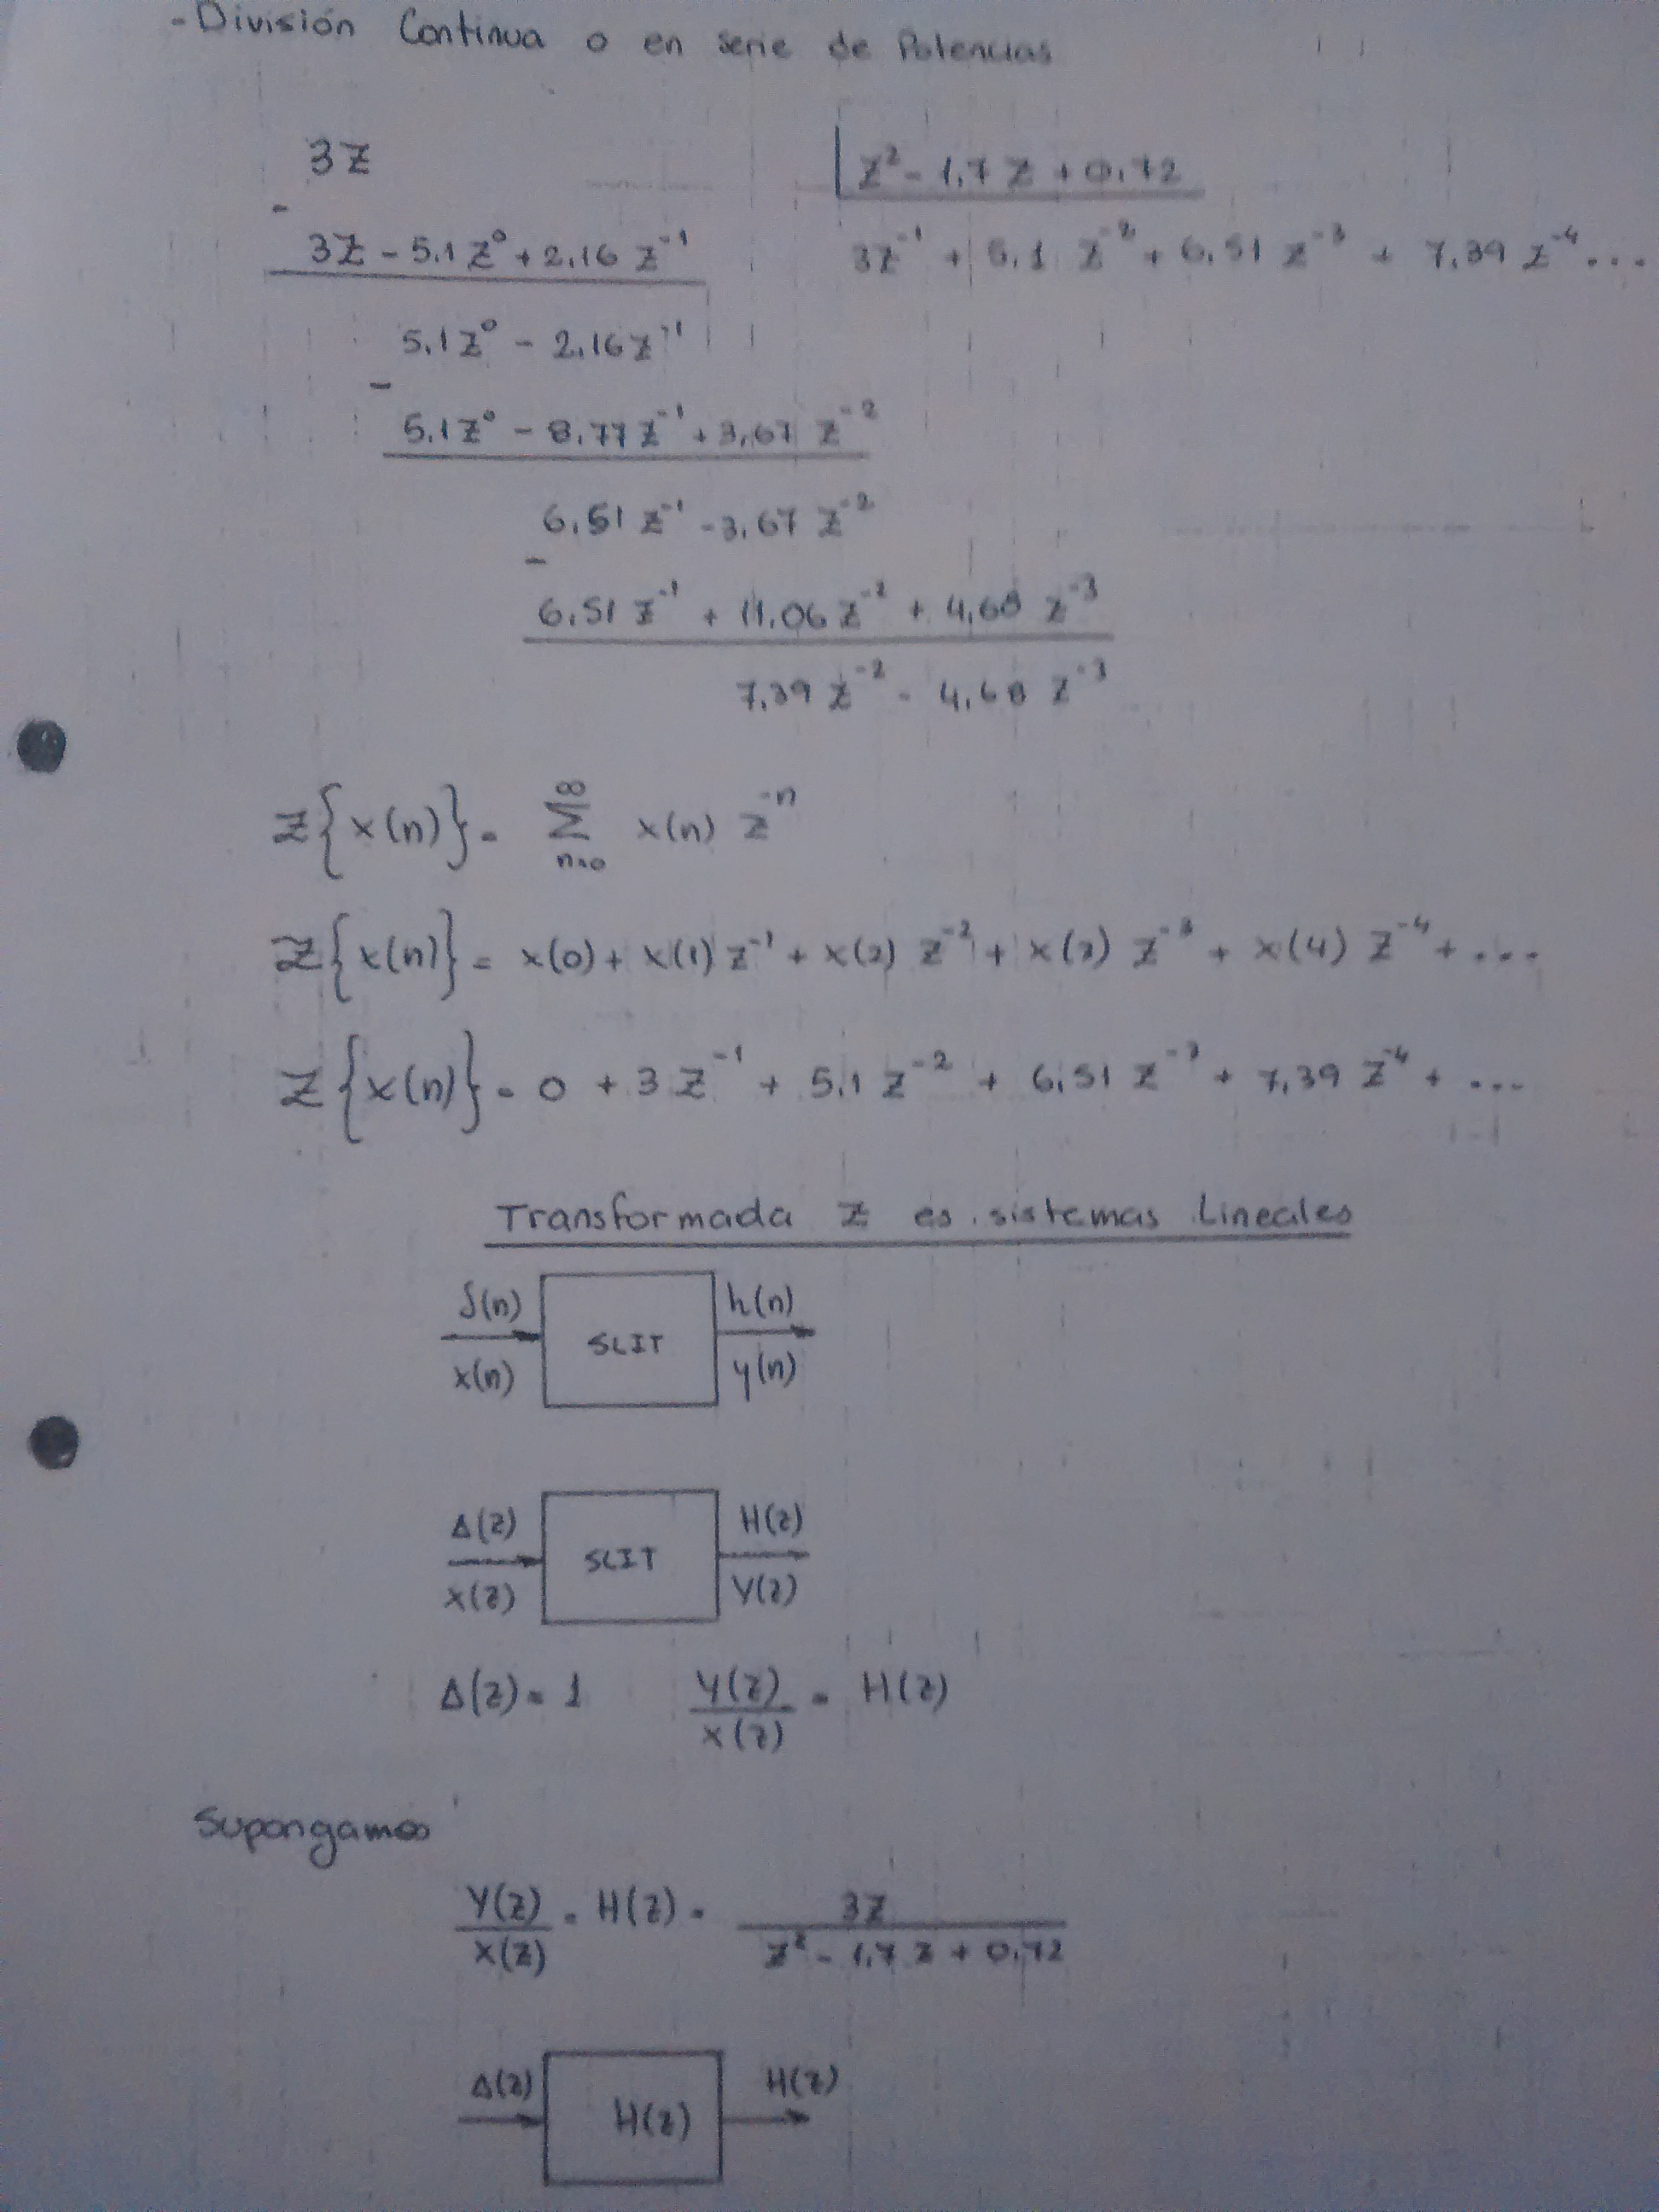 - División Continua o en serie de Potencias
3z |z² - 1,7 z + 0,72
- 3z - 5,1 z⁰ + 2,16 z⁻¹ 3z⁻¹ + 5,1 z⁻² + 6,51 z⁻³ + 7,39 z⁻⁴ ...
5,1z⁰ - 2,16z⁻¹
- 5,1z⁰ - 8,77z⁻¹ + 3,67 z⁻²
6,51 z⁻¹ - 3,67 z⁻²
- 6,51 z⁻¹ + 11,06 z⁻² + 4,68 z⁻³
7,39 z⁻² - 4,68 z⁻³
z{x(n)} = ∞∑n=0 x(n) z⁻ⁿ
z{x(n)} = x(0) + x(1) z⁻¹ + x(2) z⁻² + x(3) z⁻³ + x(4) z⁻⁴ + ...
z{x(n)} = 0 + 3 z⁻¹ + 5,1 z⁻² + 6,51 z⁻³ + 7,39 z⁻⁴ + ...
Transformada z es sistemas Lineales
δ(n) h(n)
SLIT
x(n) y(n)
Δ(z) H(z)
SLIT
X(z) Y(z)
Δ(z) = 1 Y(z)/X(z) = H(z)
Supongamos
Y(z)/X(z) = H(z) = 3z/(z² - 1,7 z + 0,72)
Δ(z) H(z)
H(z)